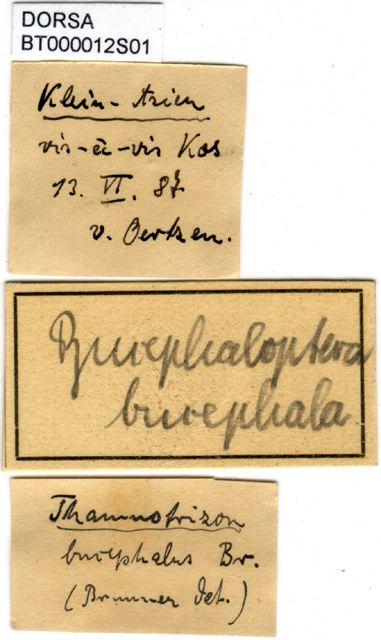 DORSA
BT000012S01
Klein-Asien
vis-à-vis Kos
13. VI. 87
v. Oertzen.
Bucephaloptera
bucephala
Thamnotrizon
bucephalus Br.
(Brunner det.)